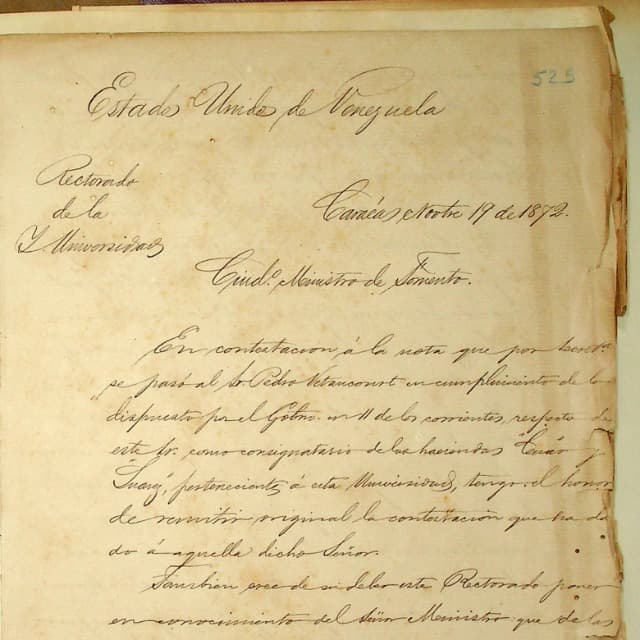 525
Estados Unidos de Venezuela
Rectorado
de la
I. Universidad
Carácas Novbre 19 de 1872.
Ciud.º Ministro de Fomento.
En contestacion á la nota que por
se pasó al Sr. Pedro Vetancourt en cumplimiento de lo
dispuesto por el Gobno. en 11 de los corrientes, respecto de
este Sr. como consignatario de las haciendas y
pertenecientes á esta Universidad, tengo el honor
de remitir original la contestacion que ha da
do á aquella dicho Señor.
Tambien cree de su deber este Rectorado poner
en conocimiento del Señor Ministro que de las